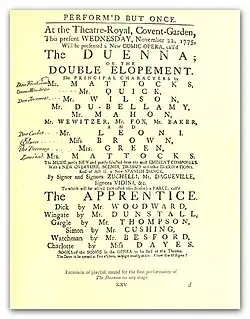 PERFORM'D BUT ONCE.
At the Theatre-Royal, Covent-Garden,
This present WEDNESDAY, November 22, 1775,
Will be presented a New COMIC OPERA, call'd
The DUENNA;
OR THE
DOUBLE ELOPEMENT.
The PRINCIPAL CHARACTERS by
Mr. MATTOCKS,
Mr. QUICK,
Mr. WILSON,
Mr. DU-BELLAMY,
Mr. MAHON,
Mr. WEWITZER, Mr. FOX, Mr. BAKER,
AND
Don Carlos Mr. LEONI.
Clara Miss BROWN,
The Duenna Mrs. GREEN,
Louisa Mrs. MATTOCKS.
The MUSIC partly NEW and partly selected from the most EMINENT COMPOSERS.
With a NEW OVERTURE, SCENES, DRESSES and other DECORATIONS.
End of Act II. a New SPANISH DANCE,
By Signor and Signora ZUCHELLI, Mr. DAGUEVILLE,
Signora VIDINI, &c.
To which will be added a FARCE, call'd
The APPRENTICE.
Dick by Mr. WOODWARD,
Wingate by Mr. DUNSTALL,
Gargle by Mr. THOMPSON,
Simon by Mr. CUSHING,
Watchman by Mr. BESFORD,
Charlotte by Miss DAYES.
BOOKS of the SONGS in the OPERA to be had at the Theatre.
Facsimile of playbill issued for the first performance of
The Duenna on any stage
XXV
d